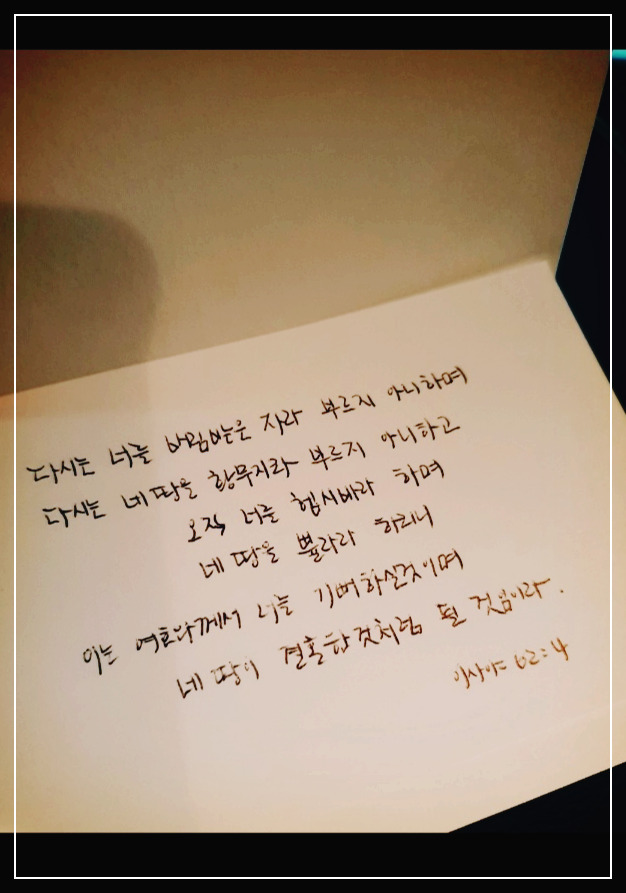 다시는 너를 버림받은 자라 부르지 아니하며
다시는 네 땅을 황무지라 부르지 아니하고
오직 너를 헵시바라 하며
네 땅을 쁄라라 하리니
이는 여호와께서 너를 기뻐하실것이며
네 땅이 결혼한것처럼 될 것임이라.
이사야 62:4